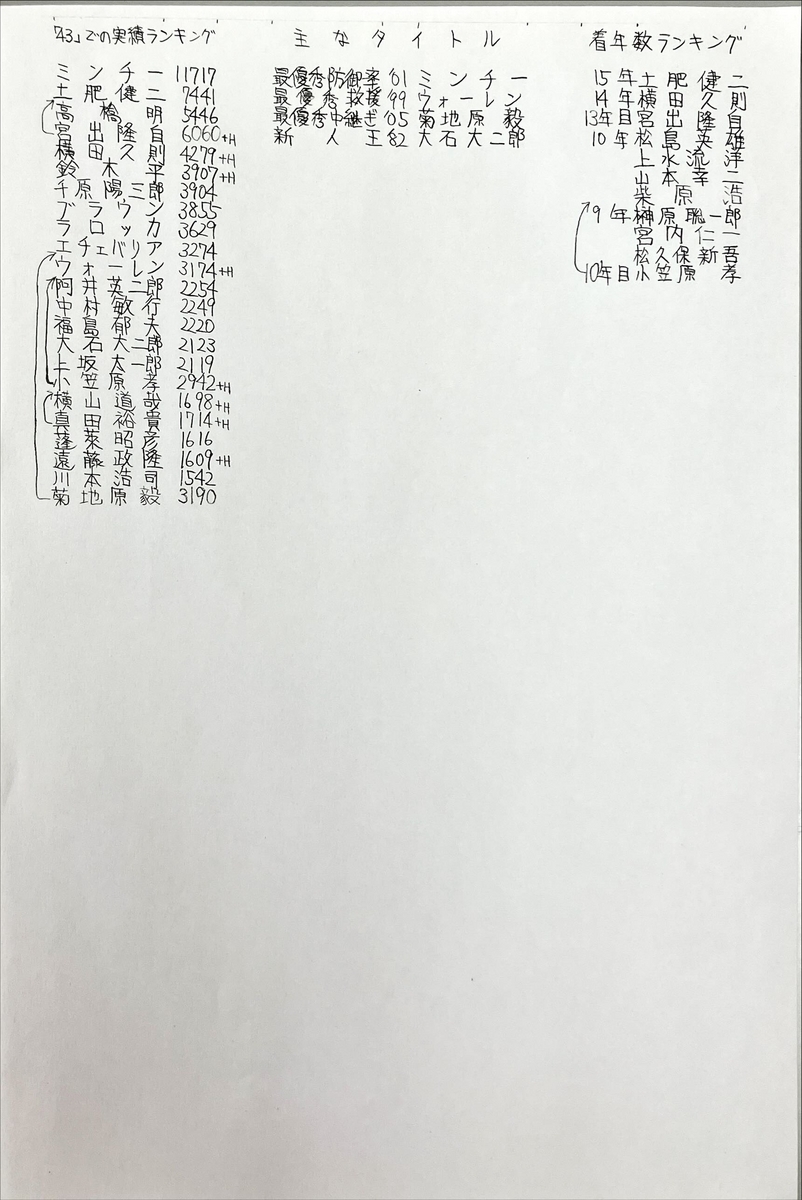 「43」での実績ランキング
ミンチー 11717
土肥健二 7441
高橋明 5446
宮出隆自 6060+H
横田久則 4279+H
鈴木平 3907+H
千原陽三郎 3904
ブラウン 3855
ラロッカ 3629
エチェバリア 3274
ウォーレン 3174+H
阿井英二郎 2254
中村敏行 2249
福島郁夫 2220
大石大二郎 2123
上坂太一郎 2119
小笠原孝 2942+H
横山道哉 1698+H
真田裕貴 1714+H
蓬莱昭彦 1616
遠藤政隆 1609+H
川本浩司 1542
菊地原毅 3190
主なタイトル
最優秀防御率 '01 ミンチー
最優秀救援 '99 ウォーレン
最優秀中継ぎ '05 菊地原毅
新人王 '82 大石大二郎
着年数ランキング
15年 土肥健二
14年目 横田久則
13年目 宮出隆自
10年 松島英雄
上水流洋
山本幸二
柴原浩
9年 榊原聡一郎
宮内仁一
松久保新吾
10年目 小笠原孝